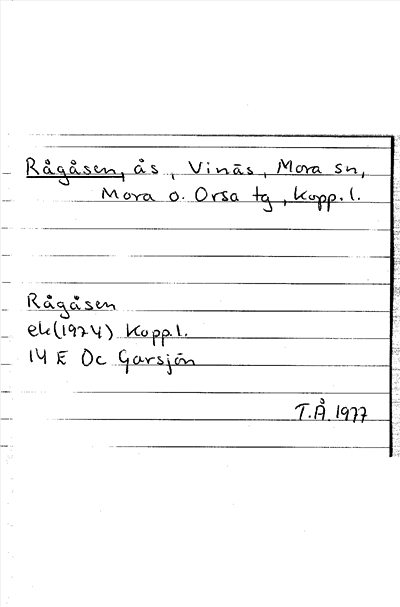 Rågåsen, ås, Vinäs, Mora sn,
Mora o. Orsa tg, Kopp. l.
Rågåsen
ek(1974) Kopp.l.
14 E 0c Garsjön
T.Å. 1977